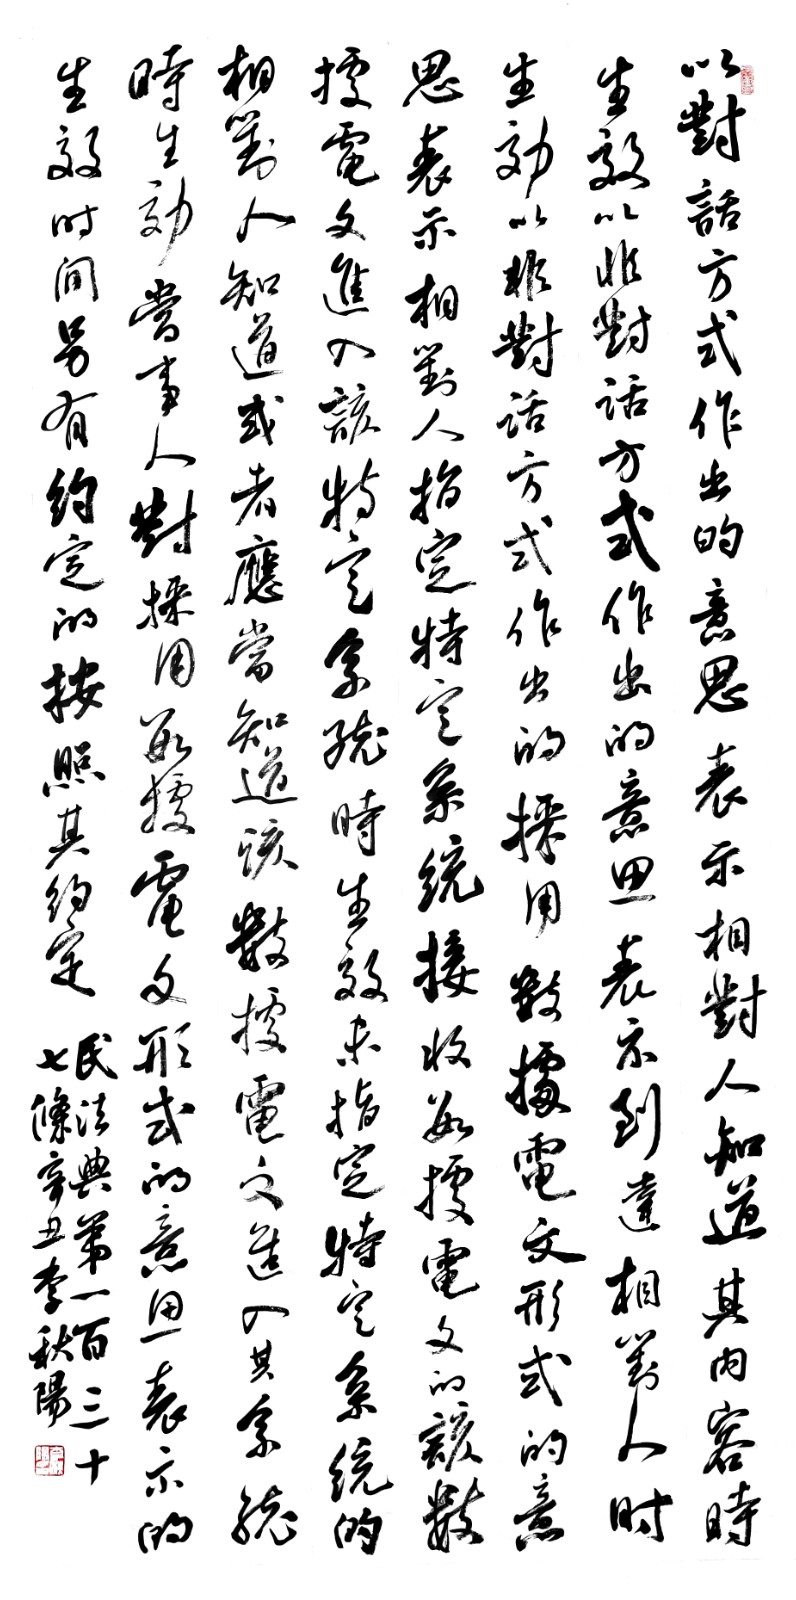 以對話方式作出的意思表示相對人知道其内容時
生效以非對話方式作出的意思表示到達相對人时
生効以非對话方式作出的採用數據電文形式的意
思表示相對人指定特定系统接收数據電文的該數
據電文進入該特定系统時生效未指定特定系统的
相對人知道或者應當知道该數據電文進入其系统
時生効當事人對採用数據電文形式的意思表示的
生效时间另有约定的按照其约定
民法典第一百三十
七條辛丑李秋陽